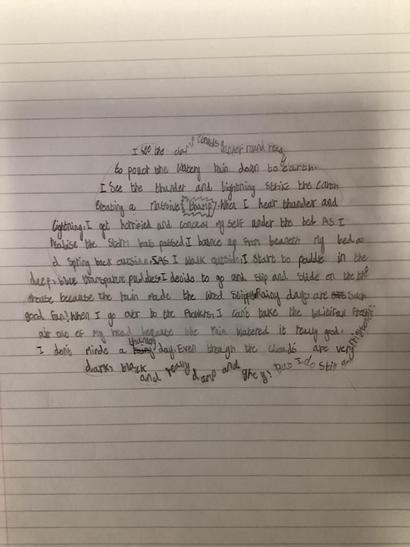 I see the clouds round
to pour the watery rain down to earth.
I see the thunder and lightning strike the earth
creating a massive [bang]. When I hear thunder and
lightning. I get horrified and conceal myself under the bed. As I
realise the storm has passed I bounce up from beneath my bed and
spring back outside. As I walk outside, I start to paddle in the
deep, blue transparent puddles. I decide to go and slip and slide on the the
because the rain made the wood slippy. Rainy days are such
good fun! When I go over to the flowers, I can't take the
out of my head because the rain watered it really good.
I don't minde a day. Even though the clouds are very
dark, black and really damp and grey. But I do still